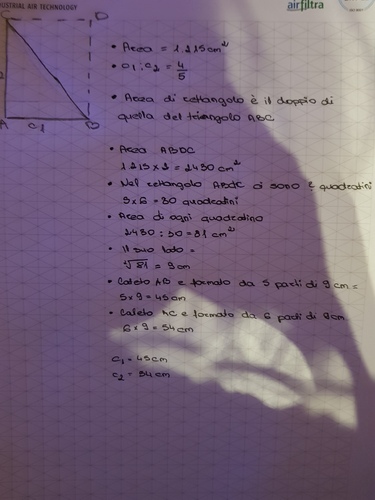 INDUSTRIAL AIR TECHNOLOGY
airfiltra
C D
A c1 B
• Area = 1.215 cm²
• c1 : c2 = 4/5
• Area di rettangolo è il doppio di
quella del triangolo ABC
• Area ABDC
1215 x 2 = 2430 cm²
• Nel rettangolo ABDC ci sono ? quadratini
5 x 6 = 30 quadratini
• Area di ogni quadratino
2430 : 30 = 81 cm²
• Il suo lato =
√81 = 9 cm
• Cateto AB e formato da 5 parti di 9 cm =
5 x 9 = 45 cm
• Cateto AC e formato da 6 parti di 9 cm
6 x 9 = 54 cm
c1 = 45 cm
c2 = 54 cm